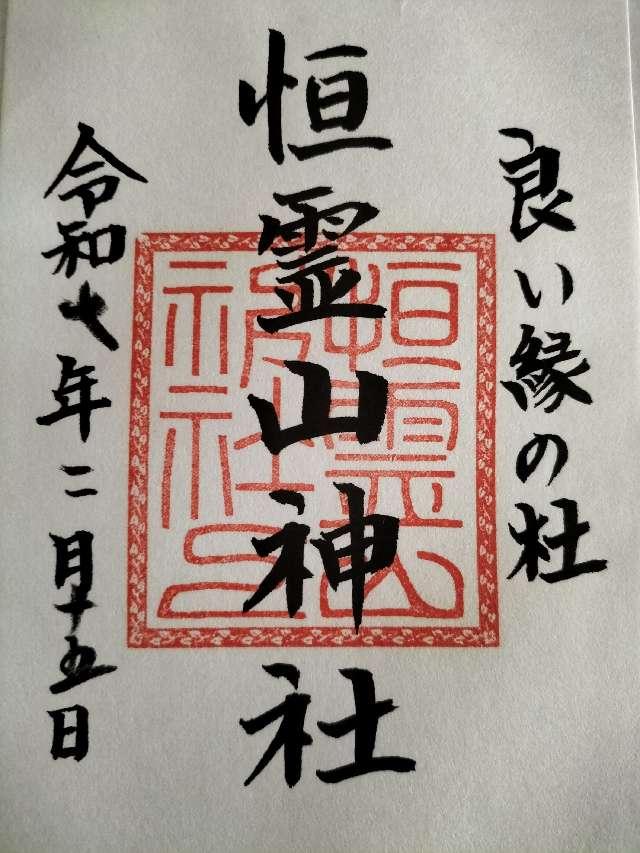 良い縁の杜
恒霊山神社
令和七年二月十五日
恒霊山
神社之印